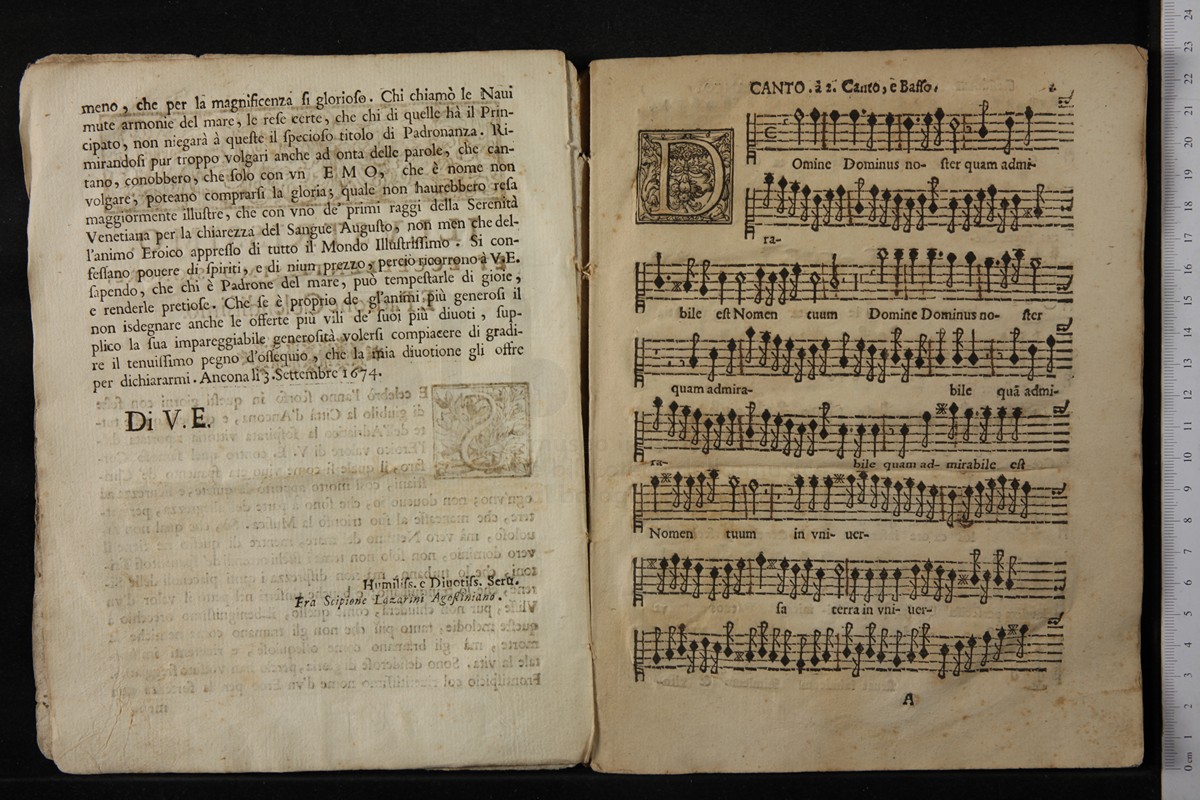 meno, che per la magnificenza si glorioso. Chi chiamò le Naui
mute armonie del mare, le rese certe, che chi di quelle hà il Prin-
cipato, non niegarà à queste il specioso titolo di Padronanza. Ri-
mirandosi pur troppo volgari anche ad onta delle parole, che can-
tano, conobbero, che solo con vn EMO, che è nome non
volgare, poteano comprarsi la gloria; quale non haurebbero resa
maggiormente illustre, che con vno de' primi raggi della Serenità
Venetiana per la chiarezza del Sangue Augusto, non men che del-
l'animo Eroico appresso di tutto il Mondo Illustrissimo. Si con-
fessano pouere di spiriti, e di niun prezzo, perciò ricorrono à V.E.
sapendo, che chi è Padrone del mare, può tempestarle di gioie,
e renderle pretiose. Che se è proprio de gl'animi più generosi il
non isdegnare anche le offerte più vili de' suoi più diuoti, sup-
plico la sua impareggiabile generosità volersi compiacere di gradi-
re il tenuissimo pegno d'ossequio, che la mia diuotione gli offre
per dichiararmi. Ancona li 3. Settembre 1674.
Di V. E.
Humiliss. e Diuotiss. Seru.
Fra Scipione Lazarini Agostiniano.
CANTO. à 2. Canto, e Basso.
Domine Dominus no- ster quam admi-
ra-
bile est Nomen tuum Domine Dominus no- ster
quam admira- bile quã admi-
ra- bile quam ad- mirabile est
Nomen tuum in vni- uer-
sa terra in vni- uer-
A